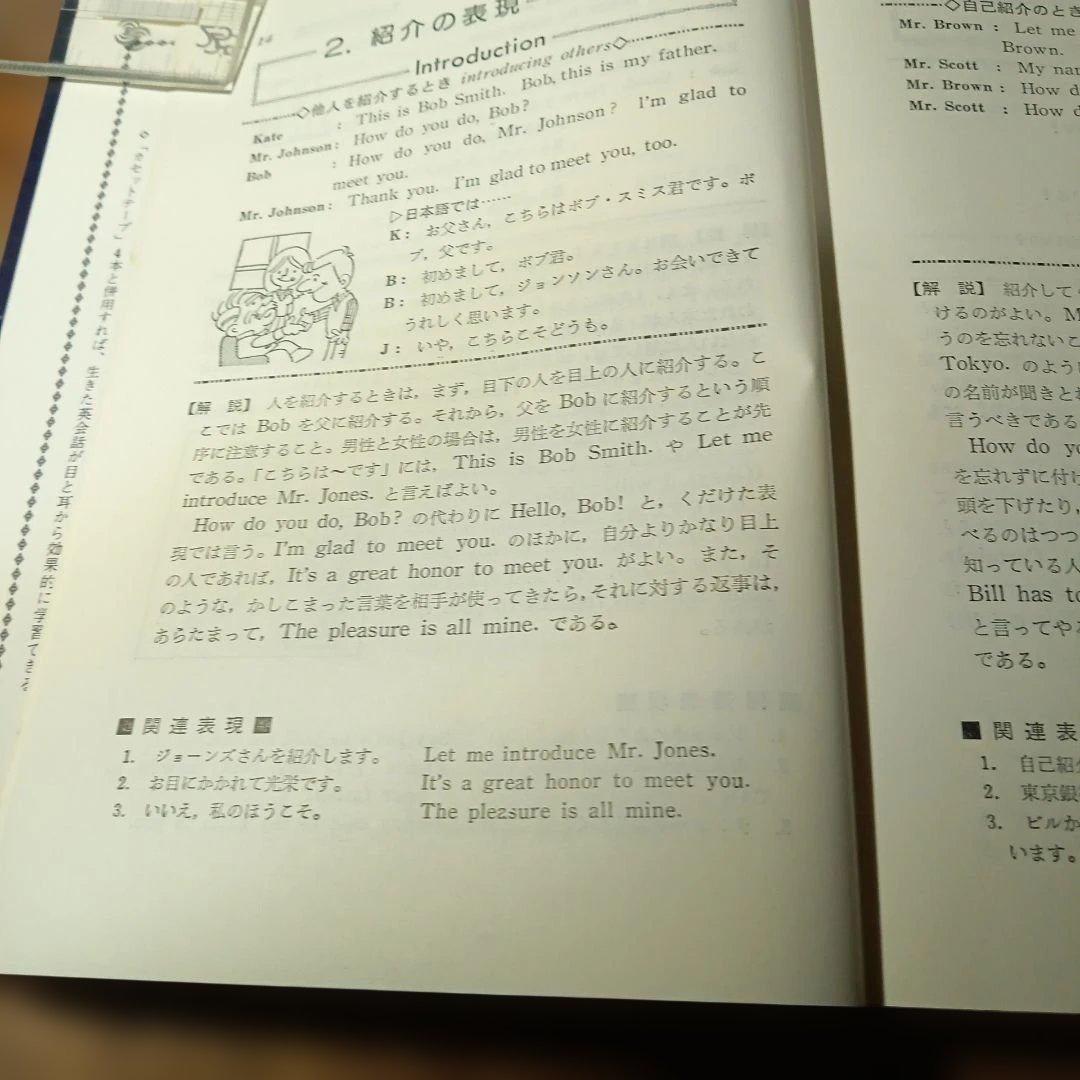 14
2. 紹介の表現
Introduction
◇他人を紹介するとき introducing others◇
Kate : This is Bob Smith. Bob, this is my father.
Mr. Johnson: How do you do, Bob?
Bob : How do you do, Mr. Johnson? I'm glad to
meet you.
Mr. Johnson: Thank you. I'm glad to meet you, too.
▷日本語では……
K: お父さん，こちらはボブ・スミス君です。ボ
ブ，父です。
B: 初めまして，ボブ君。
B: 初めまして，ジョンソンさん。お会いできて
うれしく思います。
J: いや，こちらこそどうも。
【解 説】 人を紹介するときは，まず，目下の人を目上の人に紹介する。こ
こでは Bob を父に紹介する。それから，父を Bob に紹介するという順
序に注意すること。男性と女性の場合は，男性を女性に紹介することが先
である。「こちらは～です」には，This is Bob Smith. や Let me
introduce Mr. Jones. と言えばよい。
How do you do, Bob? の代わりに Hello, Bob! と，くだけた表
現では言う。I'm glad to meet you. のほかに，自分よりかなり目上
の人であれば，It's a great honor to meet you. がよい。また，そ
のような，かしこまった言葉を相手が使ってきたら，それに対する返事は，
あらたまって，The pleasure is all mine. である。
■関連表現■
1. ジョーンズさんを紹介します。 Let me introduce Mr. Jones.
2. お目にかかれて光栄です。 It's a great honor to meet you.
3. いいえ，私のほうこそ。 The pleasure is all mine.
◇「カセットテープ」4本と併用すれば、生きた英会話が目と耳から効果的に学習できる
◇自己紹介のとき
Mr. Brown : Let me
Brown.
Mr. Scott : My nam
Mr. Brown : How d
Mr. Scott : How d
【解 説】 紹介して
けるのがよい。M
うのを忘れないこ
Tokyo. のように
の名前が聞きと
言うべきである
How do yo
を忘れずに付け
頭を下げたり，
べるのはつつ
知っている人
Bill has to
と言ってや
である。
■関連表
1. 自己紹介
2. 東京銀
3. ビルか
います。